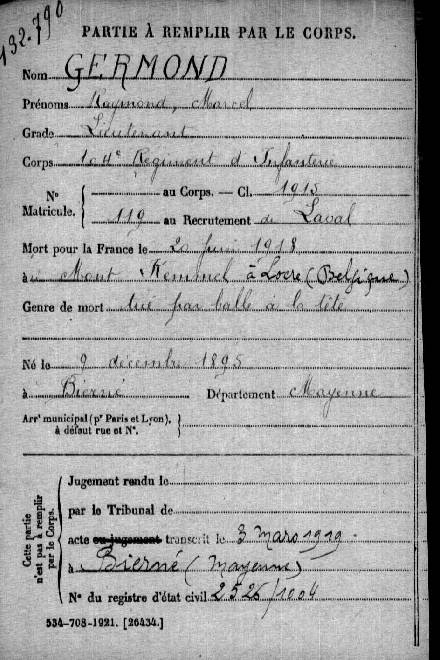 132.790
PARTIE À REMPLIR PAR LE CORPS.
Nom GERMOND
Prénoms Raymond, Marcel
Grade Lieutenant
Corps 104e Régiment d'Infanterie
N° Matricule. au Corps. — Cl. 1915
119 au Recrutement de Laval
Mort pour la France le 20 juin 1918
à Mont Kemmel à Locre (Belgique)
Genre de mort tué par balle à la tête
Né le 9 décembre 1895
à Bierné Département Mayenne
Arrt municipal (pr Paris et Lyon),
à défaut rue et N°.
Cette partie n'est pas à remplir par le Corps.
Jugement rendu le
par le Tribunal de
acte ou jugement transcrit le 3 mars 1919.
à Bierné (Mayenne)
N° du registre d'état civil 2526/1004
534-708-1921. [26434.]